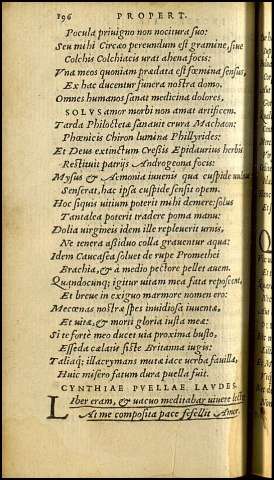 196 PROPERT.
Pocula priuigno non nocitura suo:
Seu mihi Circæo pereundum est gramine, siue
Colchis Colchiacis urat ahena focis:
Vna meos quoniam prædata est fœmina sensus,
Ex hac ducentur funera nostra domo.
Omnes humanos sanat medicina dolores,
SOLVS amor morbi non amat artificem.
Tarda Philoctetæ sanauit crura Machaon:
Phœnicis Chiron lumina Phillyrides:
Et Deus extinctum Cressis Epidaurius herbis
Restituit patrijs Androgeona focis:
Mysus & Aemonia iuuenis qua cuspide uulnus
Senserat, hac ipsa cuspide sensit opem.
Hoc siquis uitium poterit mihi demere; solus
Tantalea poterit tradere poma manu:
Dolia uirgineis idem ille repleuerit urnis,
Ne tenera assiduo colla grauentur aqua:
Idem Caucasea soluet de rupe Promethei
Brachia, & a medio pectore pellet auem.
Quandocunq; igitur uitam mea fata reposcent,
Et breue in exiguo marmore nomen ero:
Mecœnas nostræ spes inuidiosa iuuentæ,
Et uitæ, & morti gloria iusta meæ:
Si te forte meo ducet uia proxima busto,
Esseda cælatis siste Britanna iugis:
Taliaq; illacrymans mutæ iace uerba fauillæ,
Huic misero fatum dura puella fuit.
CYNTHIAE PVELLAE LAVDES.
LIber eram, & uacuo meditabar uiuere lecto
At me composita pace fefellit Amor.